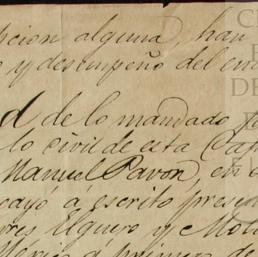 pcion alguna, han
o y desempeño del en
d de lo mandado
lo civil de esta Cap
Manuel Pavon, en
cayó á escrito presen
res Elguero y Mo
México á primero de